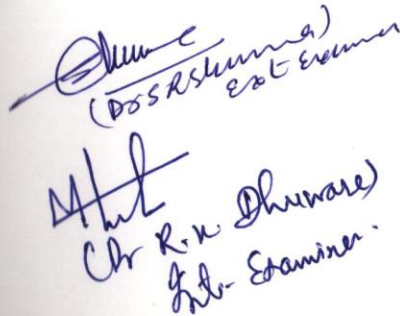 (Dr S R Skumar)
Ext Examiner
(Dr R. K. Dhuware)
Int- Examiner.